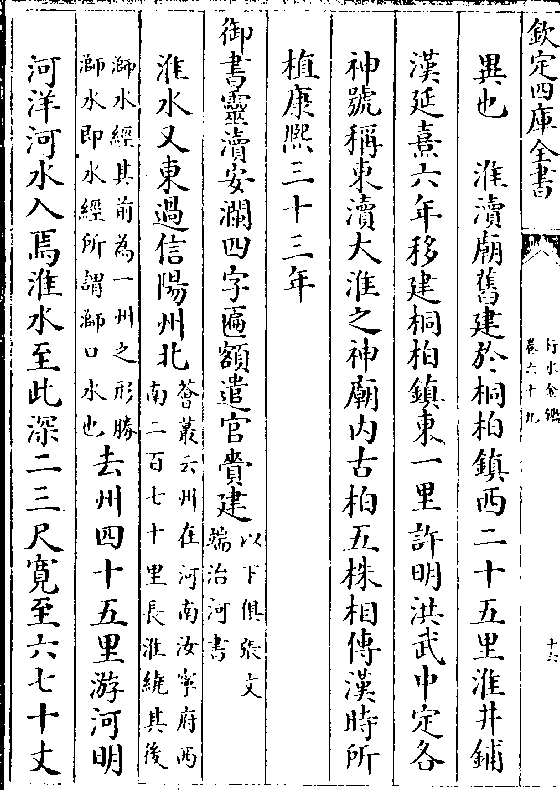 欽定四庫全書
行水金鑑
卷六十九
十六
異也　淮瀆廟舊建於桐柏鎮西二十五里淮井鋪
漢延熹六年移建桐柏鎮東一里許明洪武中定各
神號稱東瀆大淮之神廟內古柏五株相傳漢時所
植康熙三十三年
御書靈瀆安瀾四字匾額遣官賫建以下俱張文
端治河書
淮水又東過信陽州北薈叢云州在河南汝寧府西
南二百七十里長淮繞其後
溮水經其前為一州之形勝
溮水即水經所謂溮口水也去州四十五里游河明
河洋河水入焉淮水至此深二三尺寬至六七十丈